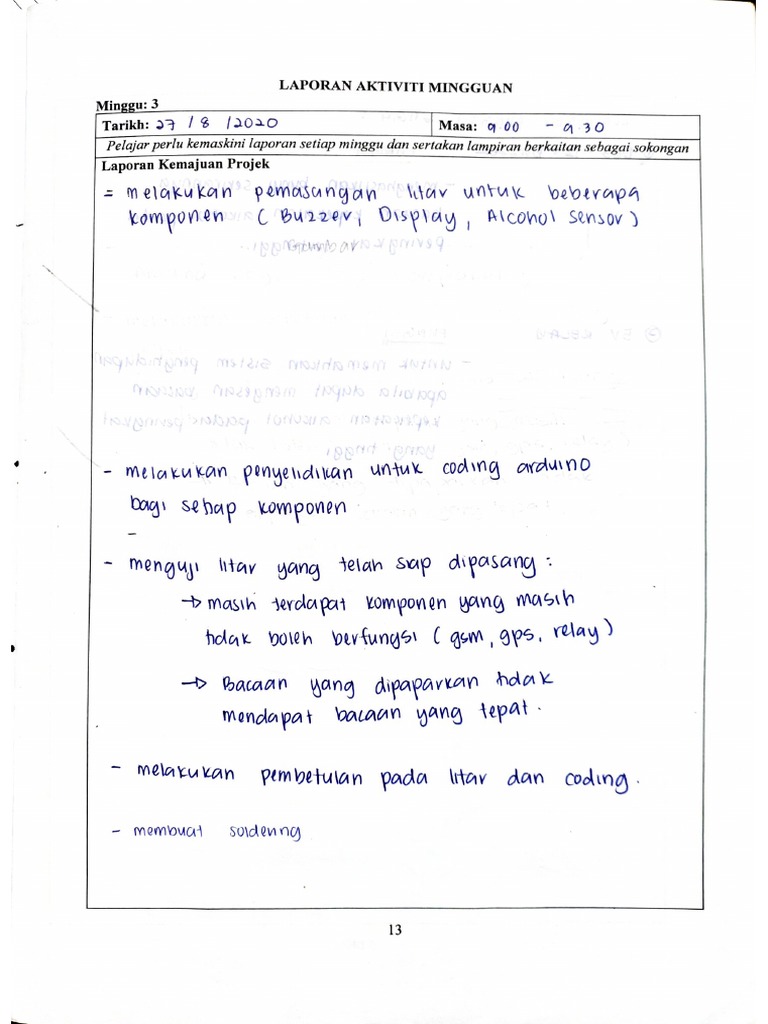 LAPORAN AKTIVITI MINGGUAN
Minggu: 3
Tarikh: 27 / 8 / 2020 Masa: 9 00 - 9.30
Pelajar perlu kemaskini laporan setiap minggu dan sertakan lampiran berkaitan sebagai sokongan
Laporan Kemajuan Projek
= melakukan pemasangan litar untuk beberapa
komponen ( Buzzer, Display, Alcohol Sensor )
- melakukan penyelidikan untuk coding arduino
bagi setiap komponen
-
- menguji litar yang telah siap dipasang :
→ masih terdapat komponen yang masih
tidak boleh berfungsi ( gsm, gps, relay )
→ Bacaan yang dipaparkan tidak
mendapat bacaan yang tepat.
- melakukan pembetulan pada litar dan coding.
- membuat soldering
13